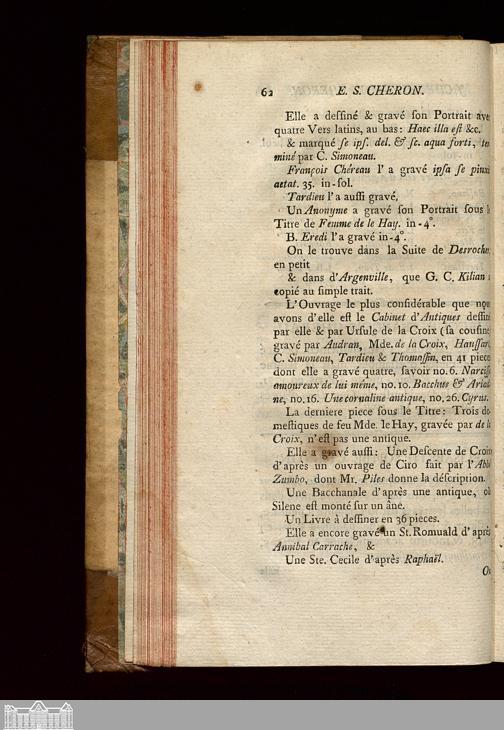 62 E. S. CHERON.
Elle a deſſiné & gravé ſon Portrait ave
quatre Vers latins, au bas: Haec illa eſt &c.
& marqué ſe ipſ. del. & ſc. aqua forti, ter
miné par C. Simoneau.
François Chéreau l'a gravé ipſa ſe pinxi
aetat. 35. in-fol.
Tardieu l'a auſſi gravé,
Un Anonyme a gravé ſon Portrait ſous l
Titre de Femme de le Hay. in-4°.
B. Eredi l'a gravé in-4°.
On le trouve dans la Suite de Desrochers
en petit
& dans d'Argenville, que G. C. Kilian
copié au ſimple trait.
L'Ouvrage le plus conſidérable que nou
avons d'elle eſt le Cabinet d'Antiques deſſiné
par elle & par Urſule de la Croix (ſa couſine
gravé par Audran, Mde. de la Croix, Hauſſart
C. Simoneau, Tardieu & Thomaſſin, en 41 piece
dont elle a gravé quatre, ſavoir no. 6. Narciſſ
amoureux de lui même, no. 10. Bacchus & Ariad
ne, no. 16. Une cornaline antique, no. 26. Cyrus.
La derniere piece ſous le Titre: Trois do
meſtiques de feu Mde. le Hay, gravée par de la
Croix, n'eſt pas une antique.
Elle a gravé auſſi: Une Deſcente de Croix
d'après un ouvrage de Ciro fait par l'Abbé
Zumbo, dont Mr. Piles donne la déſcription.
Une Bacchanale d'après une antique, où
Silene eſt monté ſur un âne.
Un Livre à deſſiner en 36 pieces.
Elle a encore gravé un St. Romuald d'après
Annibal Carrache, &
Une Ste. Cecile d'après Raphaël.